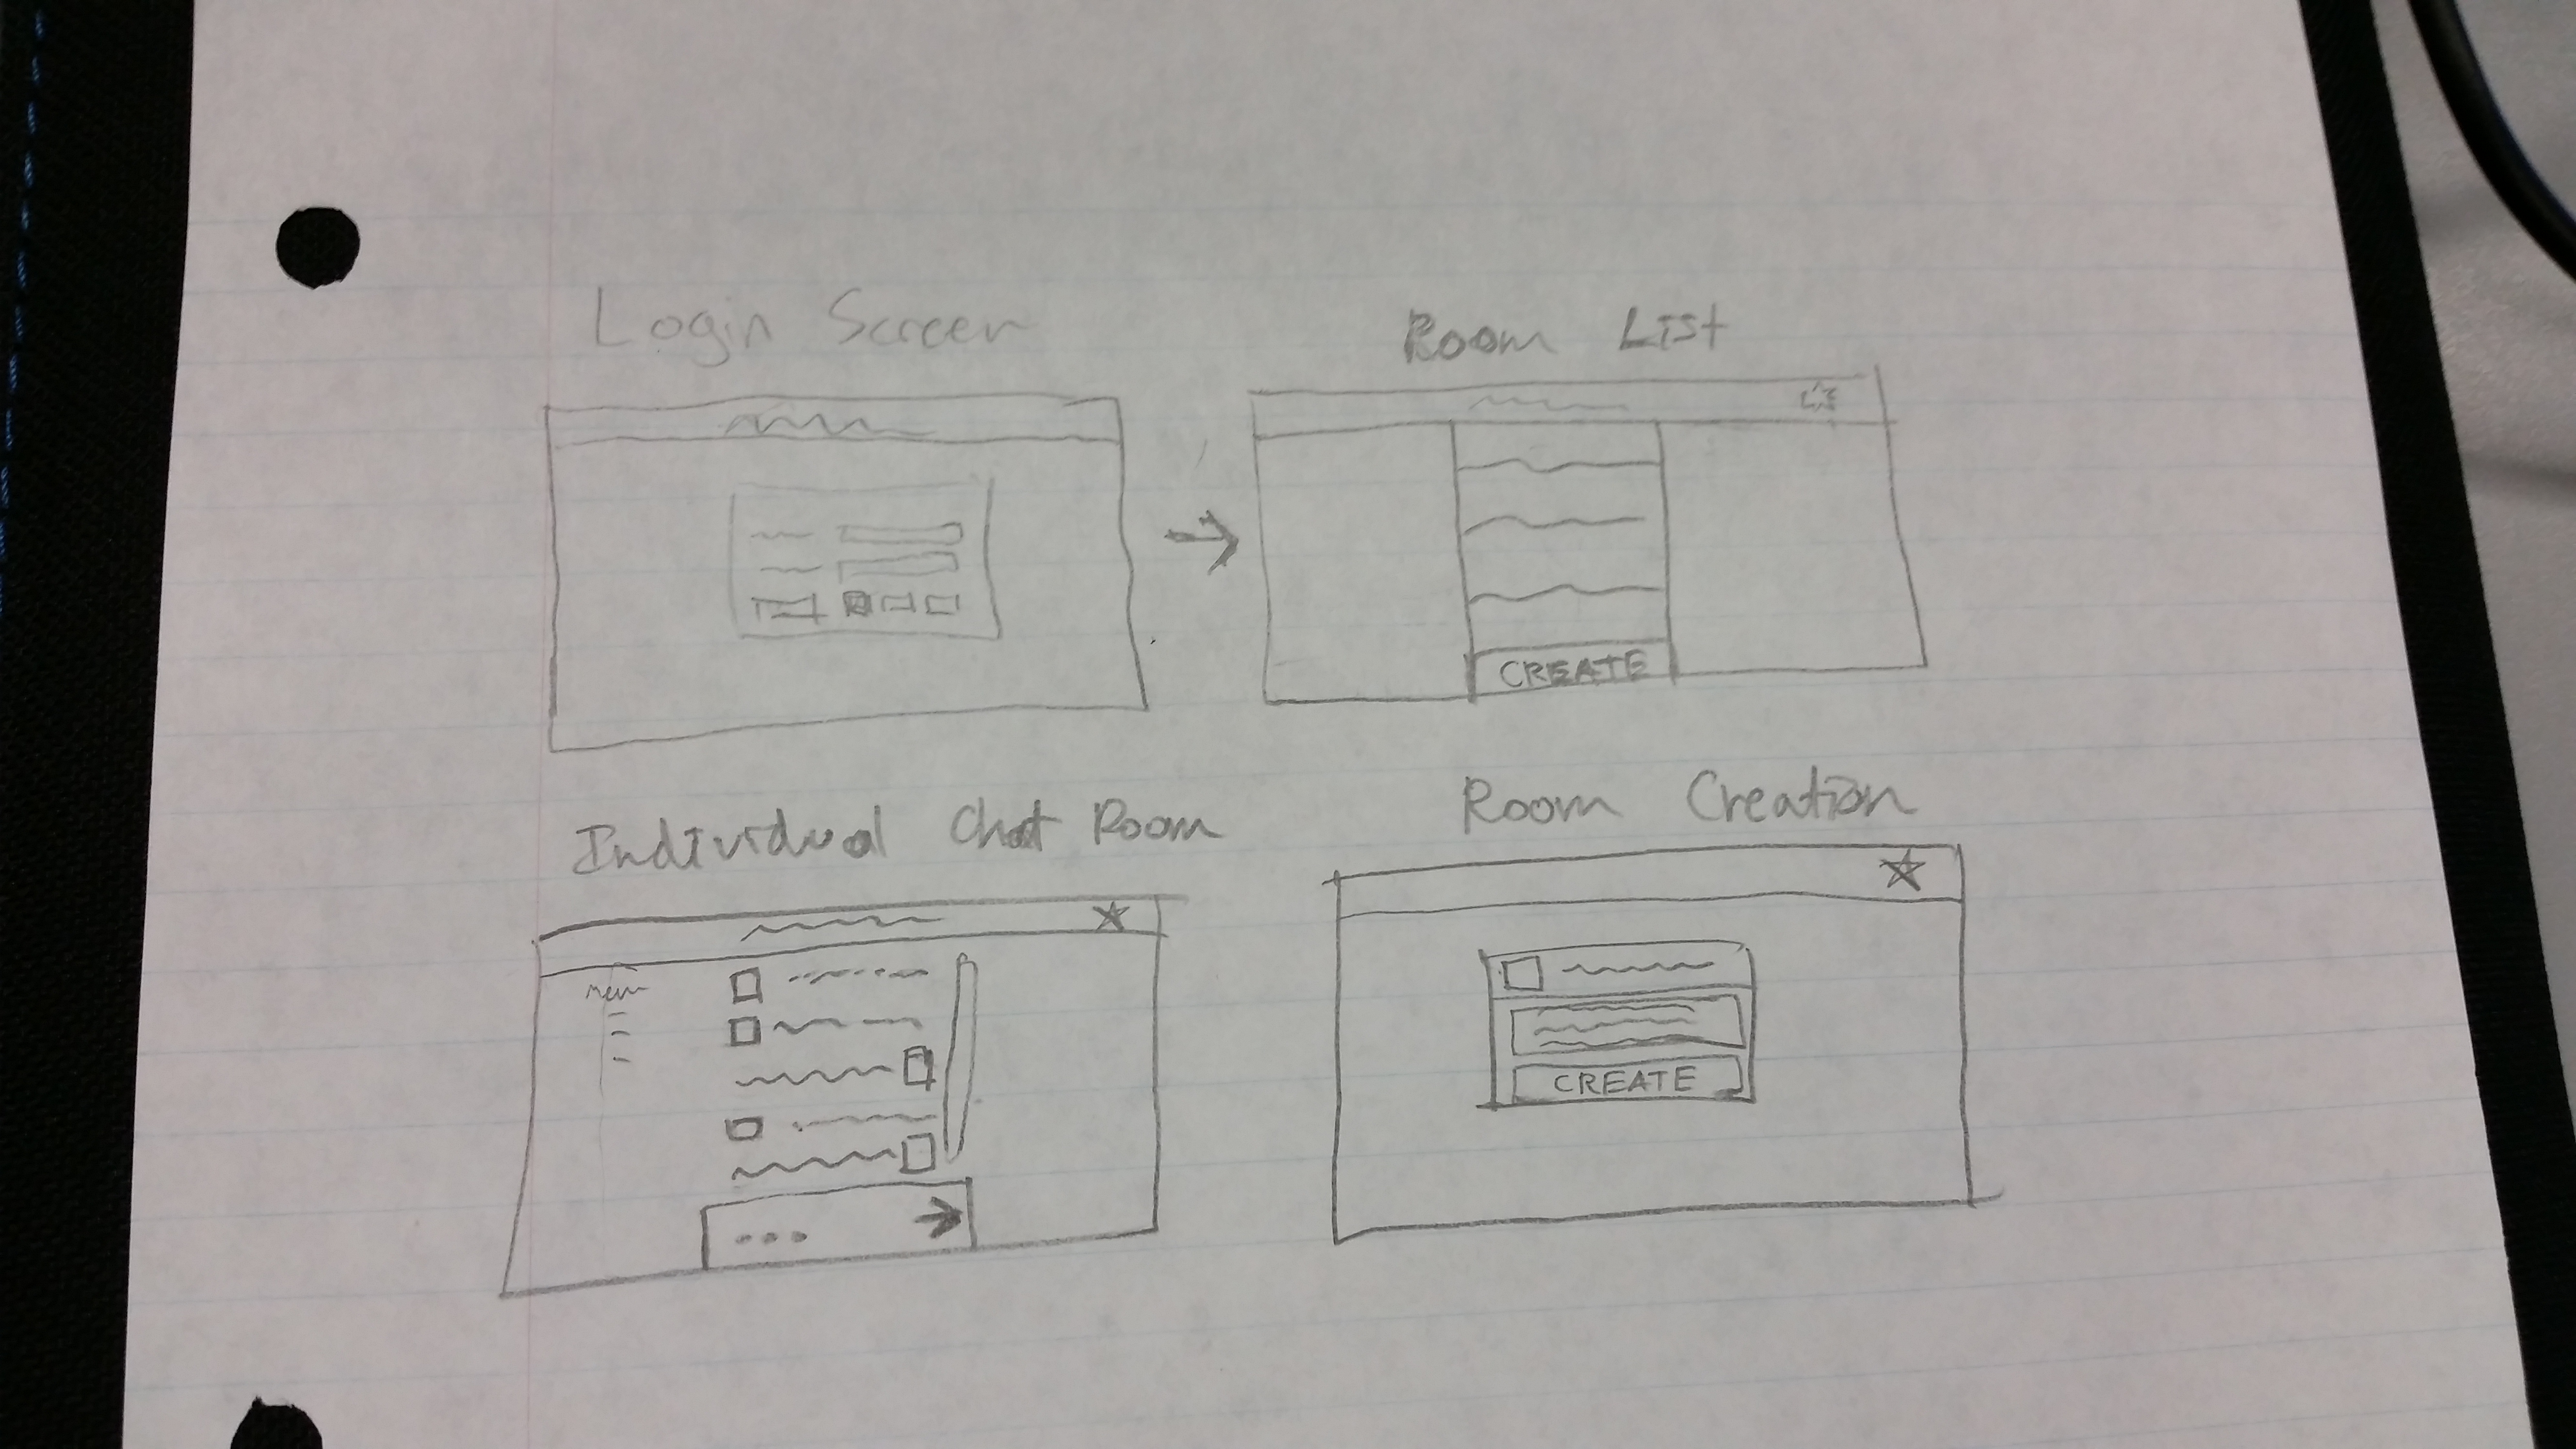 Login Screen
Room List
CREATE
Individual Chat Room
Room Creation
menu
...
CREATE